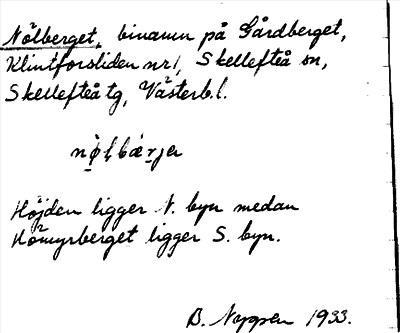 Nölberget, binamn på Gårdberget,
Klintforsliden nr 1, Skellefteå sn,
Skellefteå tg, Västerb. l.
Höjden ligger N. byn medan
ligger S. byn.
B. 1933.